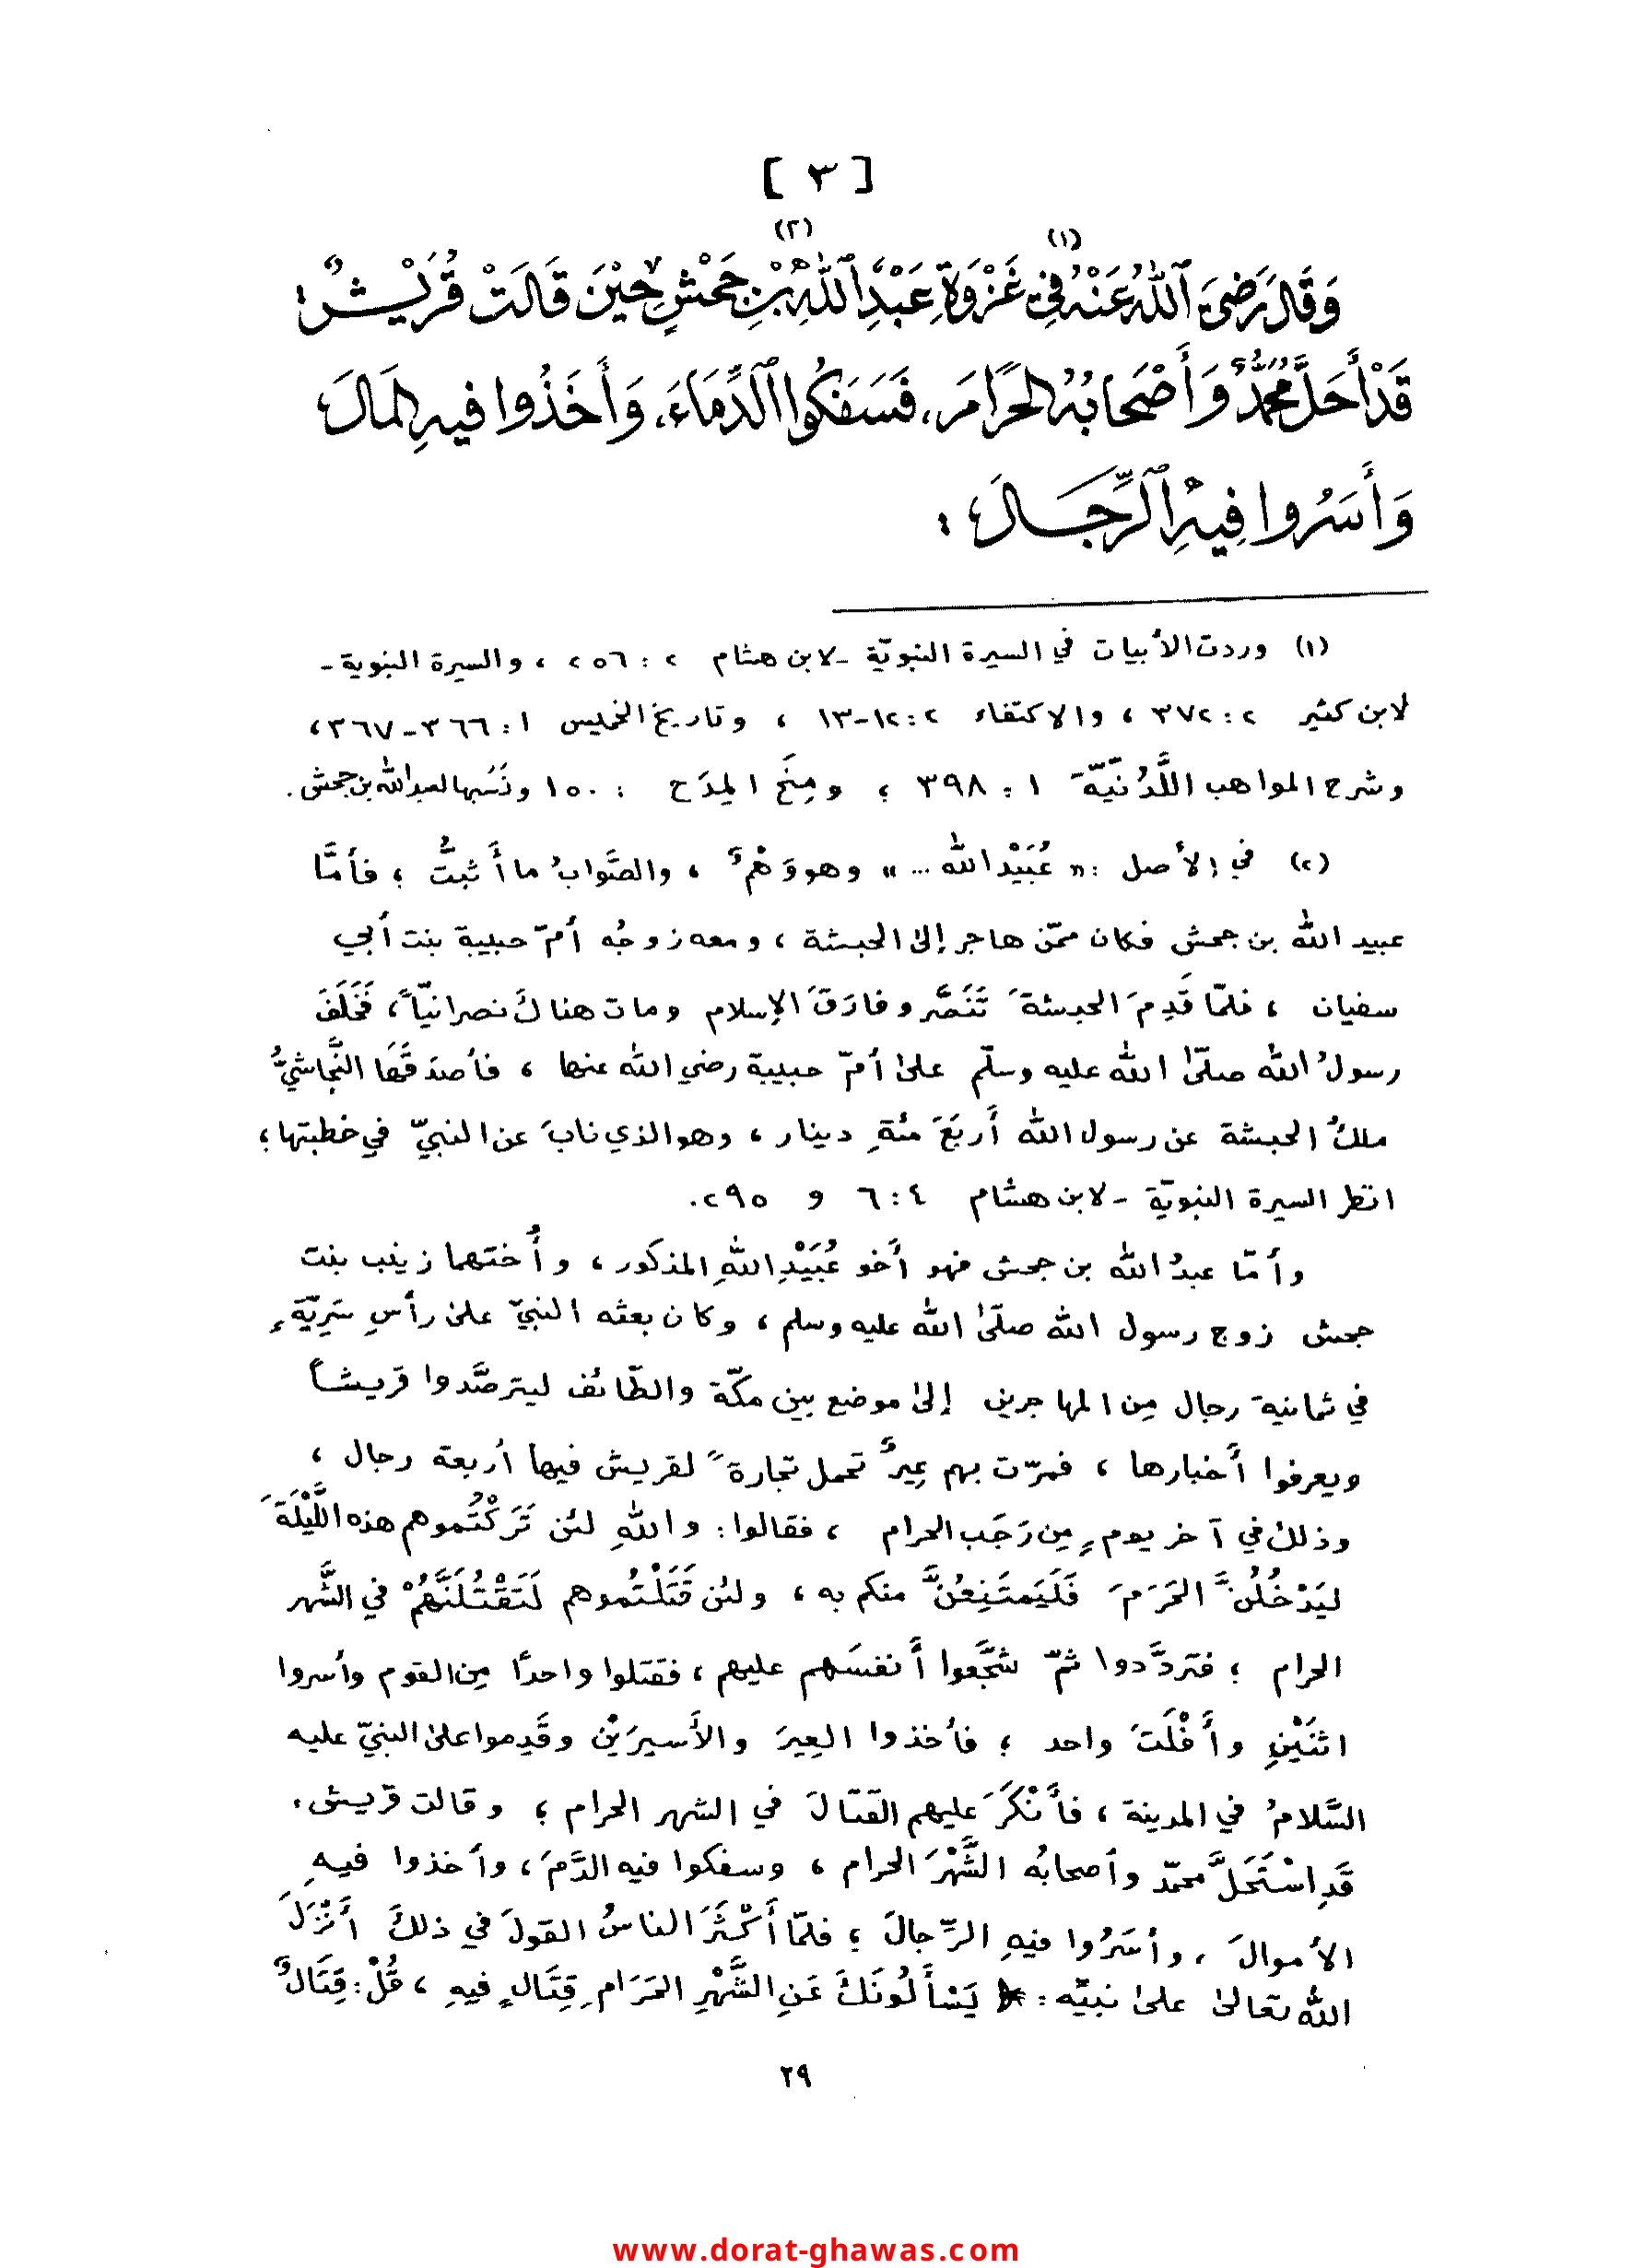 [ ٣ ]
وَقَالَ رَضِيَ ٱللهُ عَنْهُ (١) فِي غَزْوَةِ عَبْدِ ٱللهِ (٢) بْنِ جَحْشٍ حِيْنَ قَالَتْ قُرَيْشٌ :
قَدْ أَحَلَّ مُحَمَّدٌ وَأَصْحَابُهُ الحَرَامَ ، فَسَفَكُوا ٱلدِّمَاءَ ، وَأَخَذُوا فِيهِ المَالَ
وَأَسَرُوا فِيهِ ٱلرِّجَالَ :
(١) وردت الأبيات في السيرة النبويّة - لابن هشام ٢ : ٢٥٦ ، والسيرة النبوية -
لابن كثير ٢ : ٣٧٢ ، والاكتفاء ٢ : ١٢-١٣ ، وتاريخ الخميس ١ : ٣٦٦-٣٦٧ ،
وشرح المواهب اللَّدُنِّيَّة ١ : ٣٩٨ ؛ ومِنَح المِدَح : ١٥٠ ونَسَبها لعبدالله بن جحش .
(٢) في الأصل : « عُبَيْدالله ... » وهو وَهْمٌ ، والصَّوابُ ما أَثبتُّ ؛ فأمَّا
عبيد الله بن جحش فكان ممّن هاجر إلى الحبشة ، ومعه زوجُه أمّ حبيبة بنت أبي
سفيان ، فلمّا قَدِمَ الحبشةَ تَنَصَّر وفارَقَ الإسلام ومات هناك نصرانيّاً ، فَخَلَفَ
رسولُ الله صلّىٰ الله عليه وسلّم علىٰ أمّ حبيبة رضي الله عنها ، فأصدَقَها النَّجاشيُّ
ملكُ الحبشة عن رسول الله أَربَعَ مئةِ دينار ، وهو الذي نابَ عن النبيّ في خطبتها ؛
انظر السيرة النبويّة - لابن هشام ٤ : ٦ و ٢٩٥ .
وأمّا عبدُ الله بن جحش فهو أَخو عُبَيْدِ اللهِ المذكور ، وأُختهما زينب بنت
جحش زوج رسول الله صلّىٰ الله عليه وسلم ، وكان بعثه النبيّ علىٰ رأسِ سَرِيّةٍ
في ثمانية رجال مِن المهاجرين إلىٰ موضع بين مكّة والطّائف ليترصَّدوا قريشاً
ويعرفوا أَخبارها ، فمرّت بهم عِيرٌ تحمل تجارةً لقريش فيها أربعة رجال ،
وذلك في آخر يومٍ مِن رَجَب الحرام ، فقالوا : واللهِ لئن تَرَكْتُموهم هذه اللَّيْلَةَ
ليَدْخُلُنَّ الحَرَمَ فَلَيَمتَنِعُنَّ منكم به ، ولئن قَتَلْتُموهم لَتَقْتُلَنَّهُمْ في الشَّهر
الحرام ؛ فتردَّدوا ثمّ شَجَّعوا أَنفسَهم عليهم ، فقتلوا واحدًا مِن القوم وأسروا
اثنَيْنِ وأَفْلَتَ واحد ؛ فأخذوا العِيرَ والأَسيرَيْن وقَدِموا علىٰ النبيّ عليه
السَّلامُ في المدينة ، فأَنْكَرَ عليهم القتالَ في الشهر الحرام ؛ وقالت قريش .
قَدِ اسْتَحَلَّ محمّد وأصحابُه الشَّهْرَ الحرام ، وسفكوا فيه الدَّمَ ، وأخذوا فيهِ
الأموالَ ، وأسَرُوا فيهِ الرِّجالَ ؛ فلمّا أَكْثَرَ الناسُ القولَ في ذلكَ أَنْزَلَ
الله تعالىٰ علىٰ نبيّه : ﴿ يَسْأَلُونَكَ عَنِ الشَّهْرِ الحَرَامِ قِتَالٍ فيهِ ، قُلْ : قِتَالٌ
٢٩
www.dorat-ghawas.com